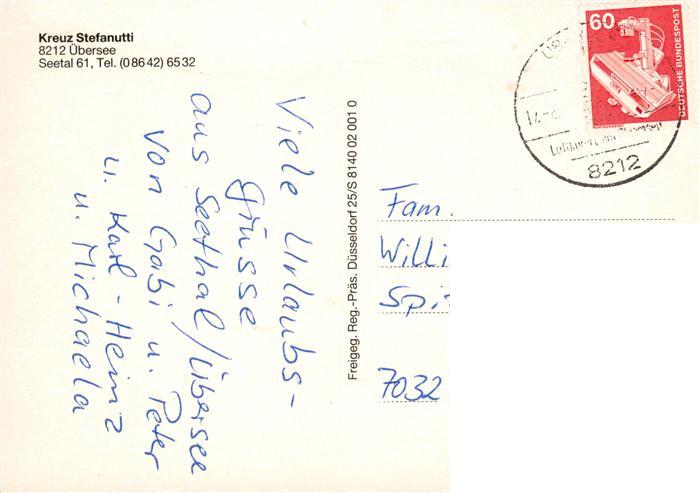 Kreuz Stefanutti
8212 Übersee
Seetal 61, Tel. (0 86 42) 65 32
Viele Urlaubs-
grüsse
aus Seethal/Übersee
von Gabi u. Peter
u. Karl-Heinz
u. Michaela
Freigeg. Reg.-Präs. Düsseldorf 25/S 8140 02 001 0
60
DEUTSCHE BUNDESPOST
Luftkurort
8212
Fam.
Willi
Spi
7032